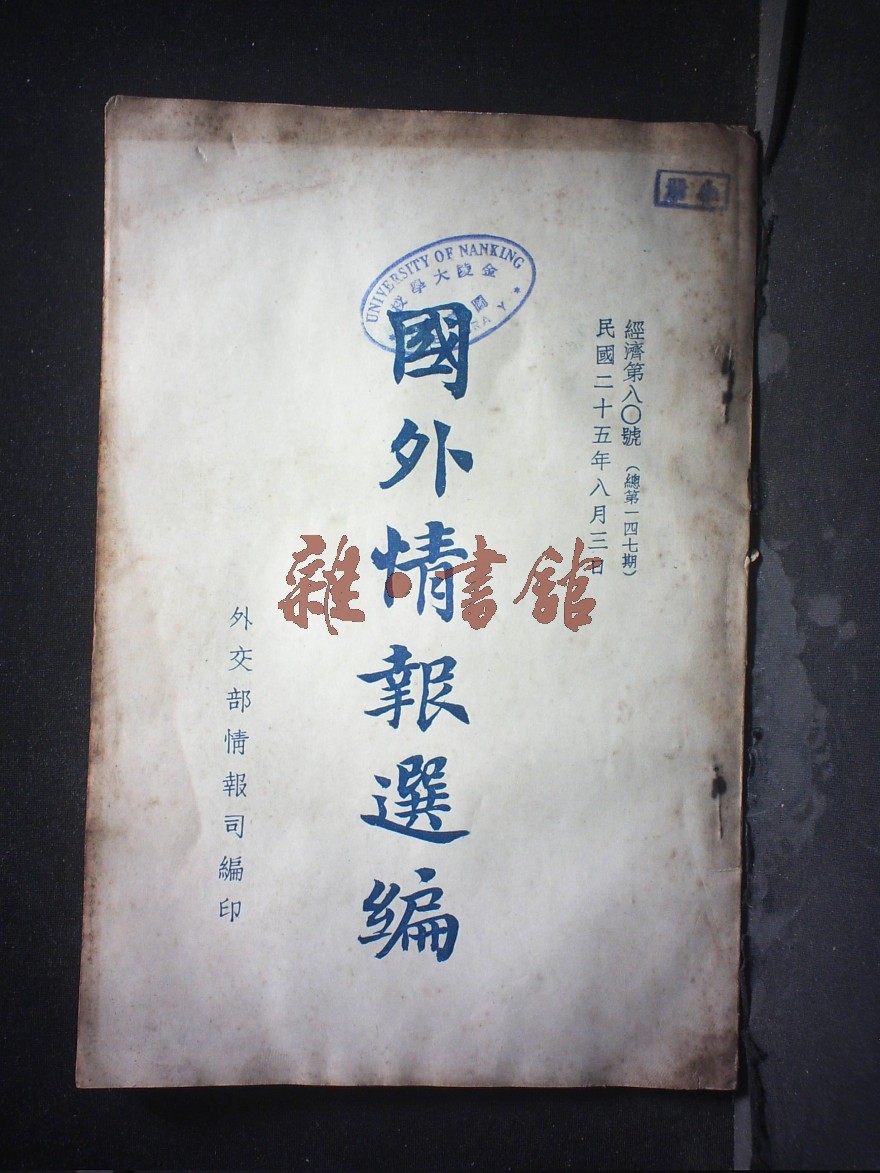 經濟第八〇號（總第一四七期）
民國二十五年八月三日
國外情報選編
外交部情報司編印
UNIVERSITY OF NANKING
金陵大學
圖
RARY
雜·書館